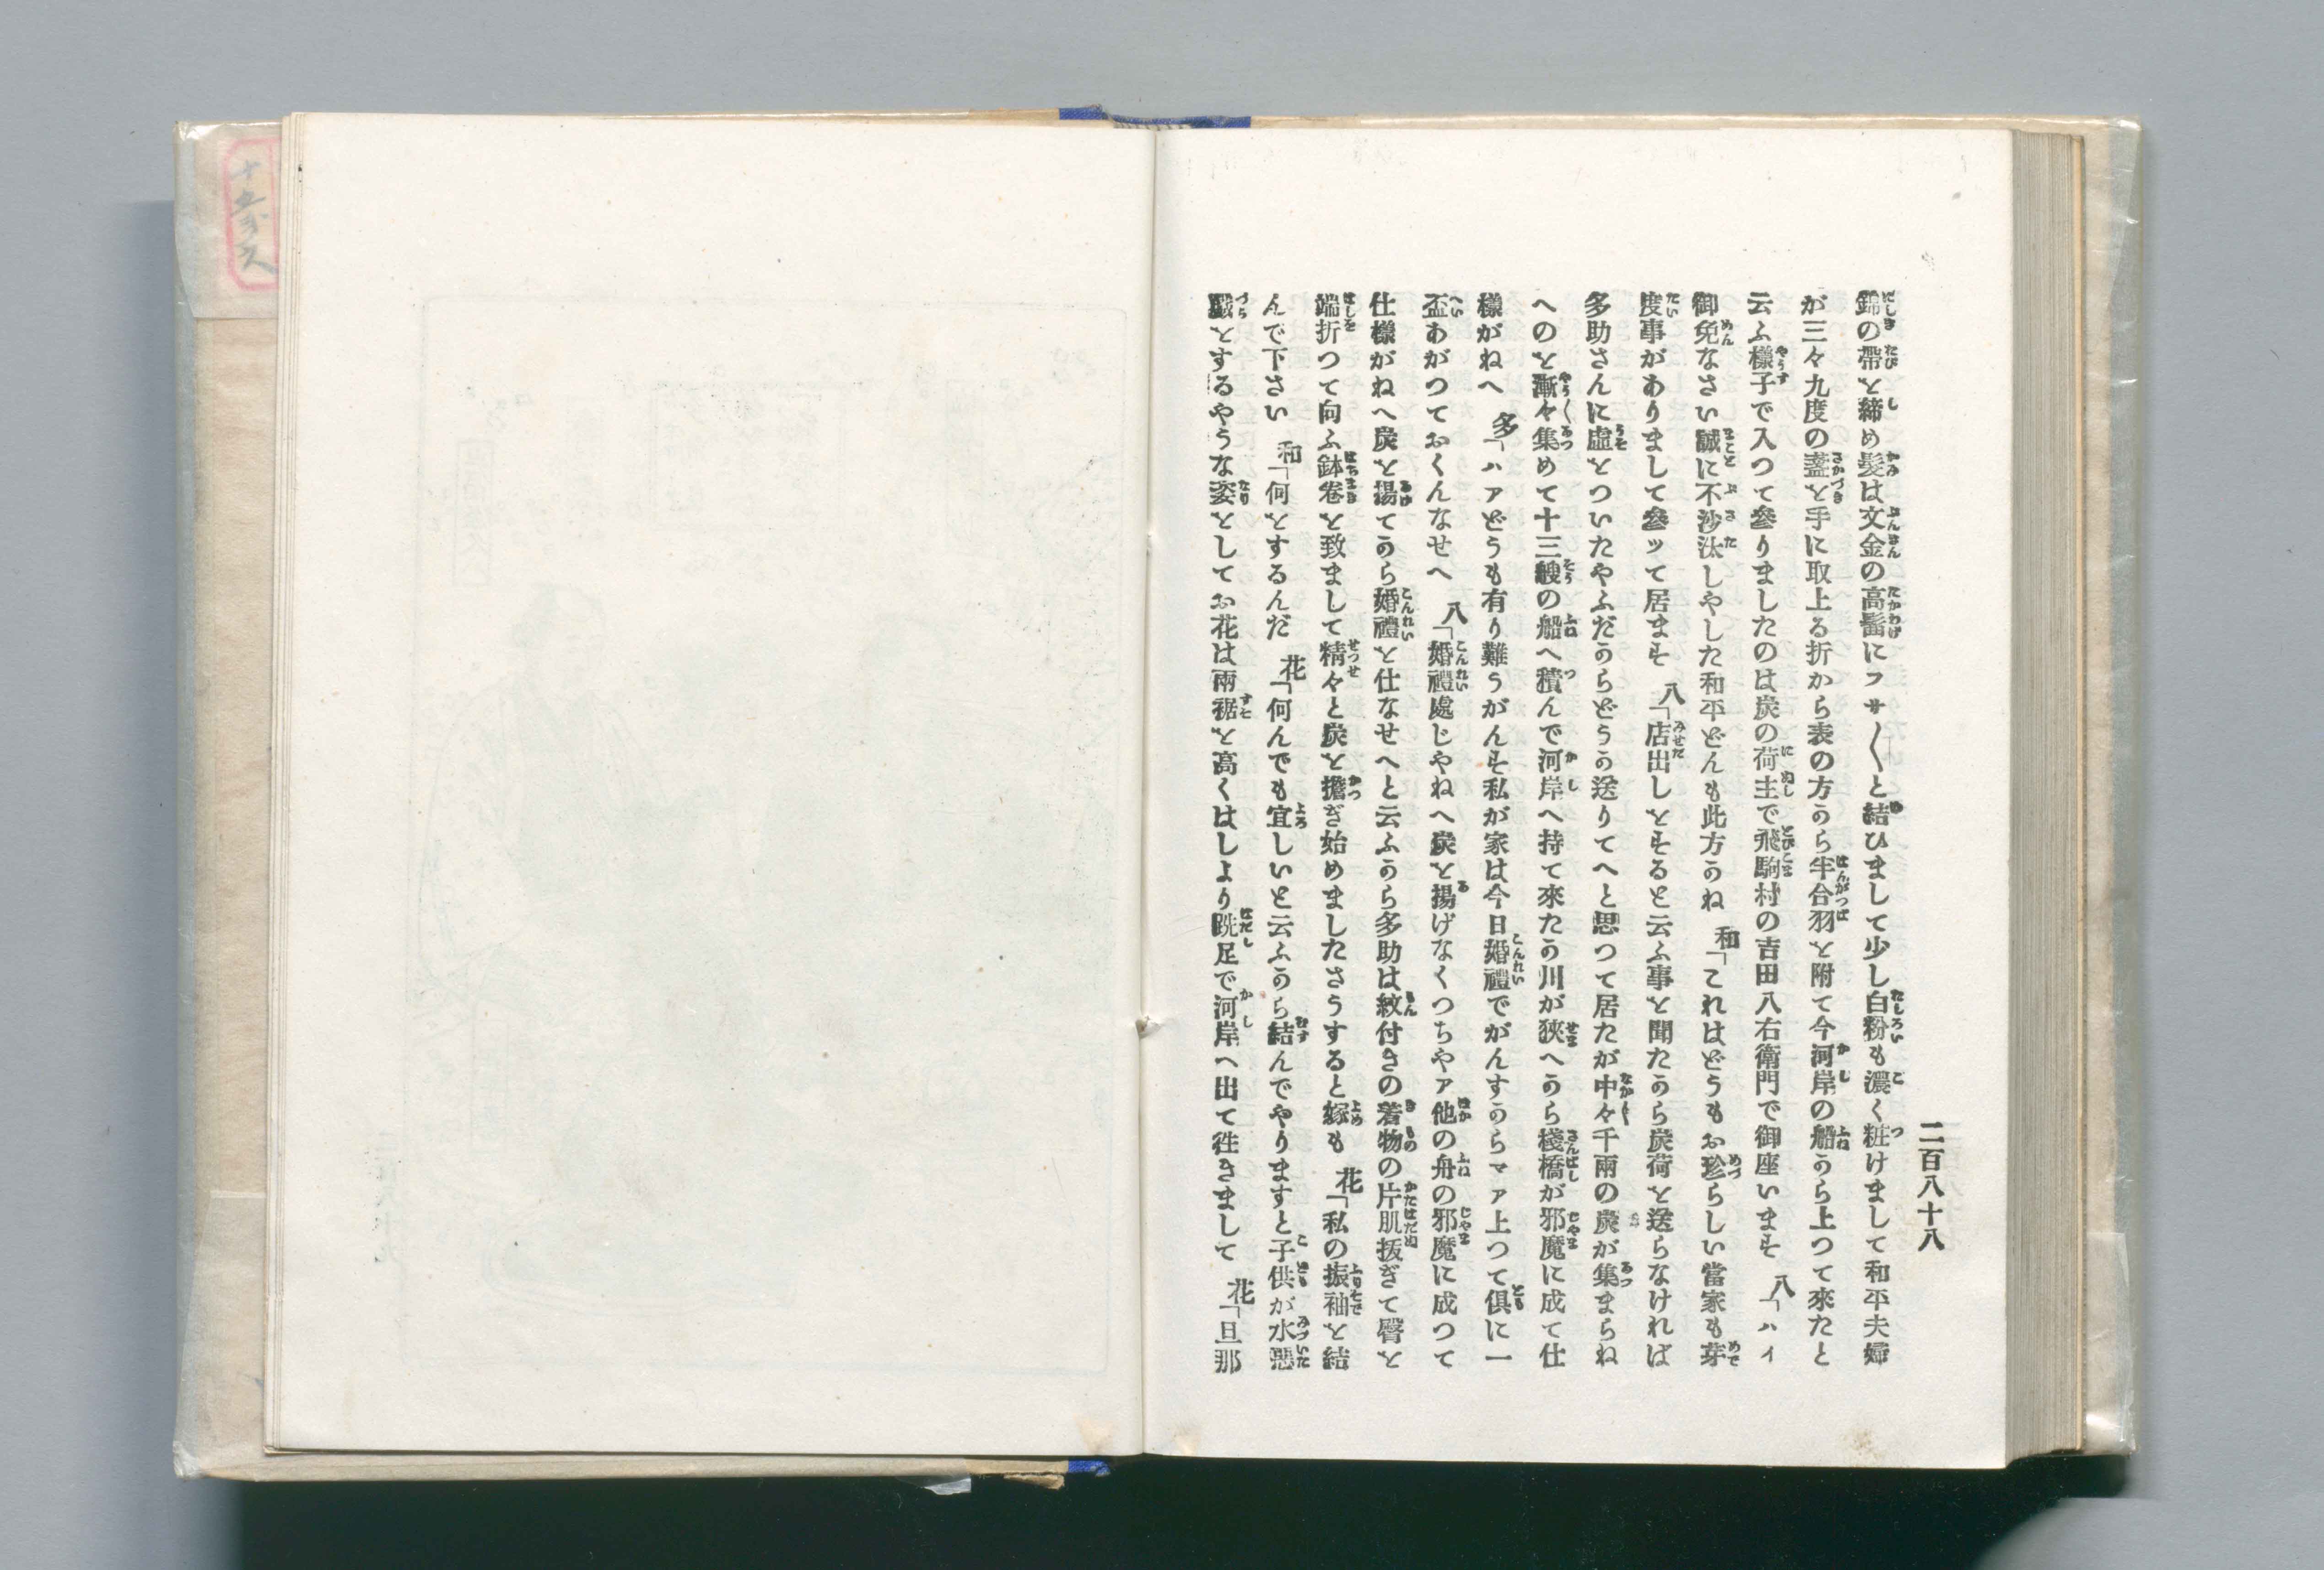 二百八十八
錦の帶を締め髮は文金の高髷にフサ〳〵と結ひまして少し白粉も濃く粧けまして和平夫婦
が三々九度の盞を手に取上る折から表の方から半合羽を附て今河岸の船から上つて來たと
云ふ樣子で入つて參りましたのは炭の荷主で飛駒村の吉田八右衛門で御座います 八「ハイ
御免なさい誠に不沙汰しやした和平どんも此方かね 和「これはどうもお珍らしい當家も芽
度事がありまして參ッて居ます 八「店出しをすると云ふ事を聞たから炭荷を送らなければ
多助さんに虛をついたやふだからどうか送りてへと思つて居たが中々千兩の炭が集まらね
へのを漸々集めて十三艘の船へ積んで河岸へ持て來たか川が狹へから棧橋が邪魔に成て仕
樣がねへ 多「ハアどうも有り難うがんす私が家は今日婚禮でがんすからマア上つて倶に一
盃あがつておくんなせへ 八「婚禮處じやねへ炭を揚げなくつちやア他の舟の邪魔に成つて
仕樣がねへ炭を揚てから婚禮を仕なせへと云ふから多助は紋付きの着物の片肌拔ぎて臀を
端折つて向ふ鉢卷を致まして精々と炭を擔ぎ始めましたさうすると嫁も 花「私の振袖を結
んで下さい 和「何をするんだ 花「何んでも宜しいと云ふから結んでやりますと子供が水惡
戲をするやうな姿をしてお花は兩裾を高くはしより跣足で河岸へ出て徃きまして 花「旦那